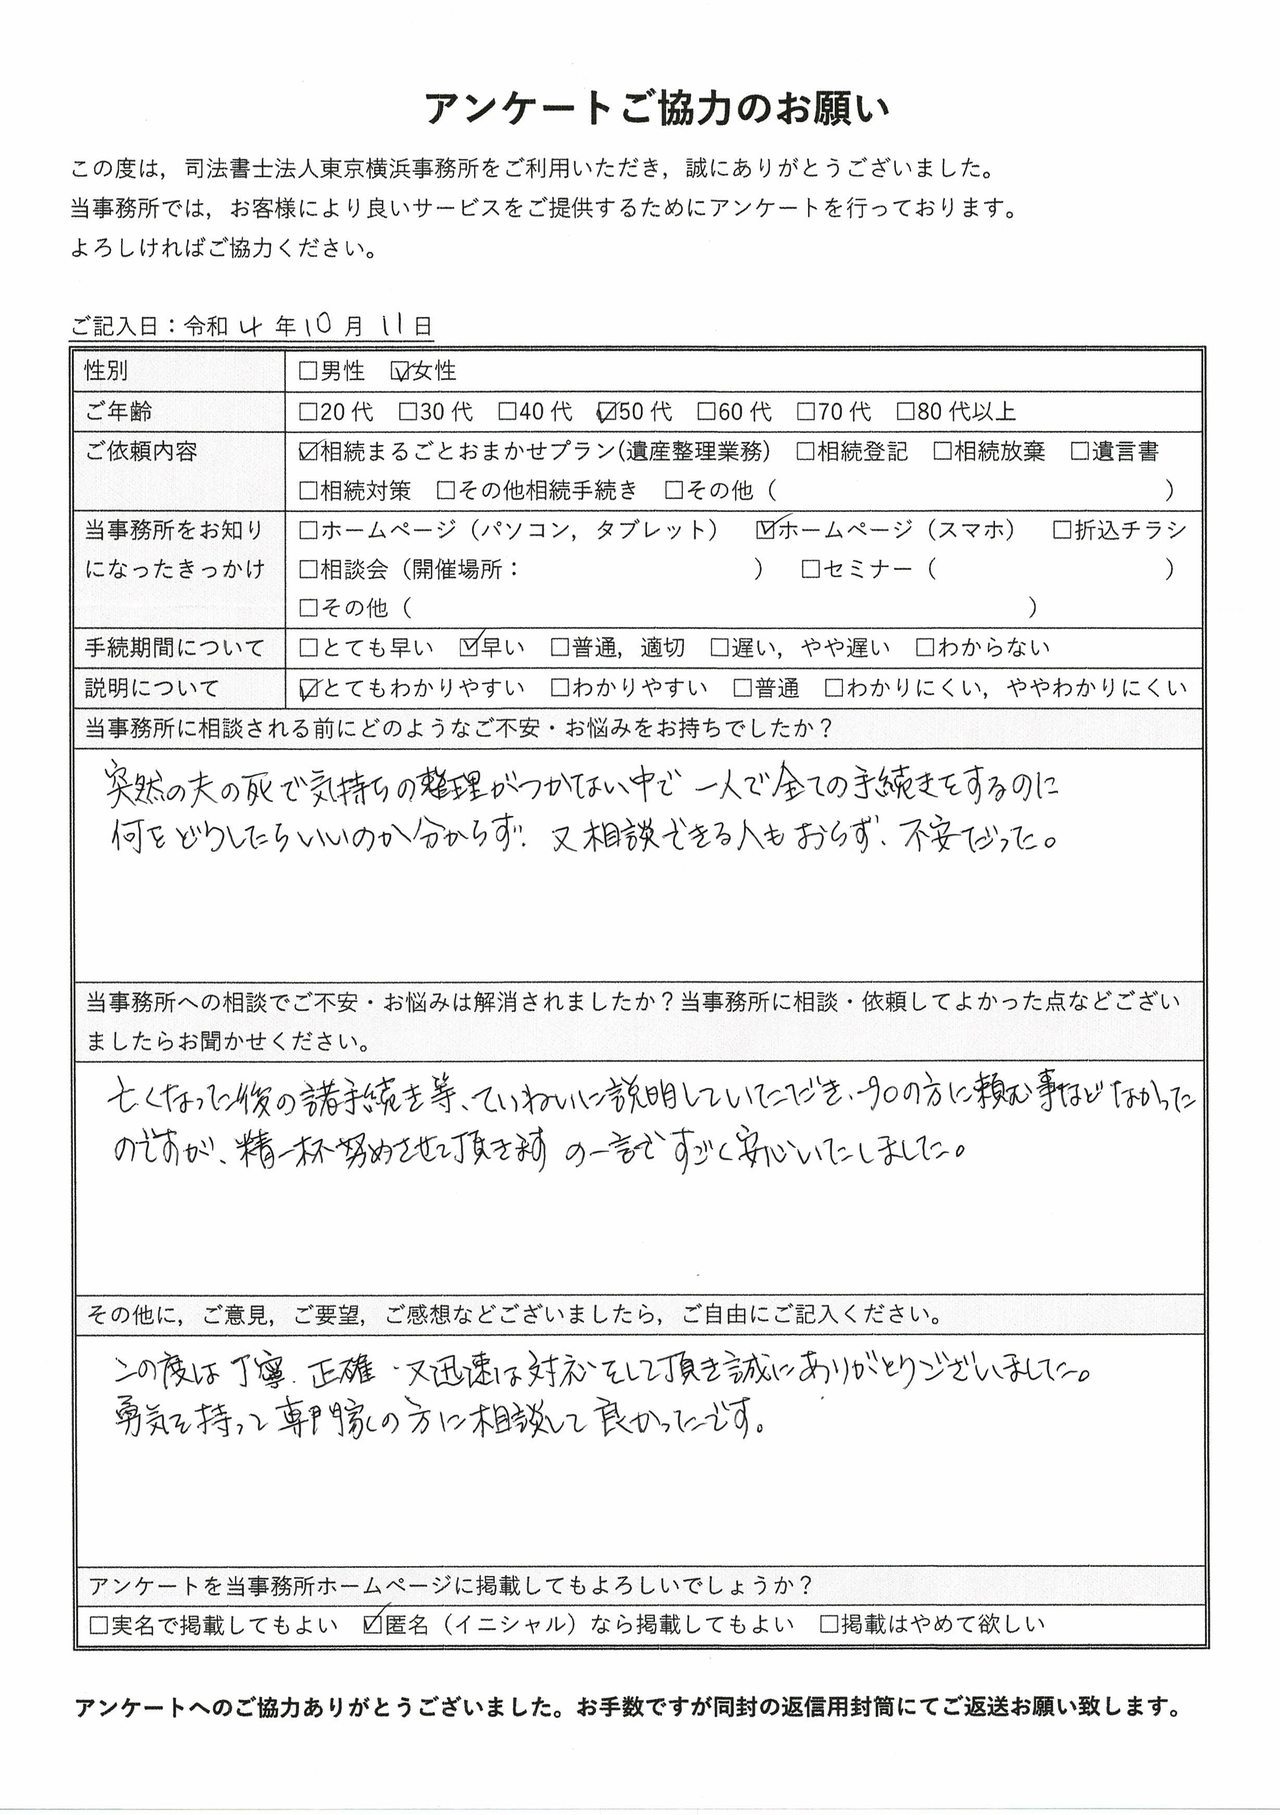 アンケートご協力のお願い
この度は，司法書士法人東京横浜事務所をご利用いただき，誠にありがとうございました。
当事務所では，お客様により良いサービスをご提供するためにアンケートを行っております。
よろしければご協力ください。
ご記入日：令和 4 年 10 月 11 日
性別 □男性 ☑女性
ご年齢 □20 代 □30 代 □40 代 ☑50 代 □60 代 □70 代 □80 代以上
ご依頼内容 ☑相続まるごとおまかせプラン(遺産整理業務) □相続登記 □相続放棄 □遺言書
□相続対策 □その他相続手続き □その他（ ）
当事務所をお知り □ホームページ（パソコン，タブレット） ☑ホームページ（スマホ） □折込チラシ
になったきっかけ □相談会（開催場所： ） □セミナー（ ）
□その他（ ）
手続期間について □とても早い ☑早い □普通，適切 □遅い，やや遅い □わからない
説明について ☑とてもわかりやすい □わかりやすい □普通 □わかりにくい，ややわかりにくい
当事務所に相談される前にどのようなご不安・お悩みをお持ちでしたか？
突然の夫の死で気持ちの整理がつかない中で 一人で全ての手続きをするのに
何をどうしたらいいのか分からず、又相談できる人もおらず、不安だった。
当事務所への相談でご不安・お悩みは解消されましたか？当事務所に相談・依頼してよかった点などござい
ましたらお聞かせください。
亡くなった後の諸手続き等、ていねいに説明していただき、プロの方に頼む事などなかった
のですが、精一杯努めさせて頂きます の一言ですごく安心いたしました。
その他に，ご意見，ご要望，ご感想などございましたら，ご自由にご記入ください。
この度は丁寧、正確、又迅速な対応をして頂き誠にありがとうございました。
勇気を持って専門家の方に相談して良かったです。
アンケートを当事務所ホームページに掲載してもよろしいでしょうか？
□実名で掲載してもよい ☑匿名（イニシャル）なら掲載してもよい □掲載はやめて欲しい
アンケートへのご協力ありがとうございました。お手数ですが同封の返信用封筒にてご返送お願い致します。